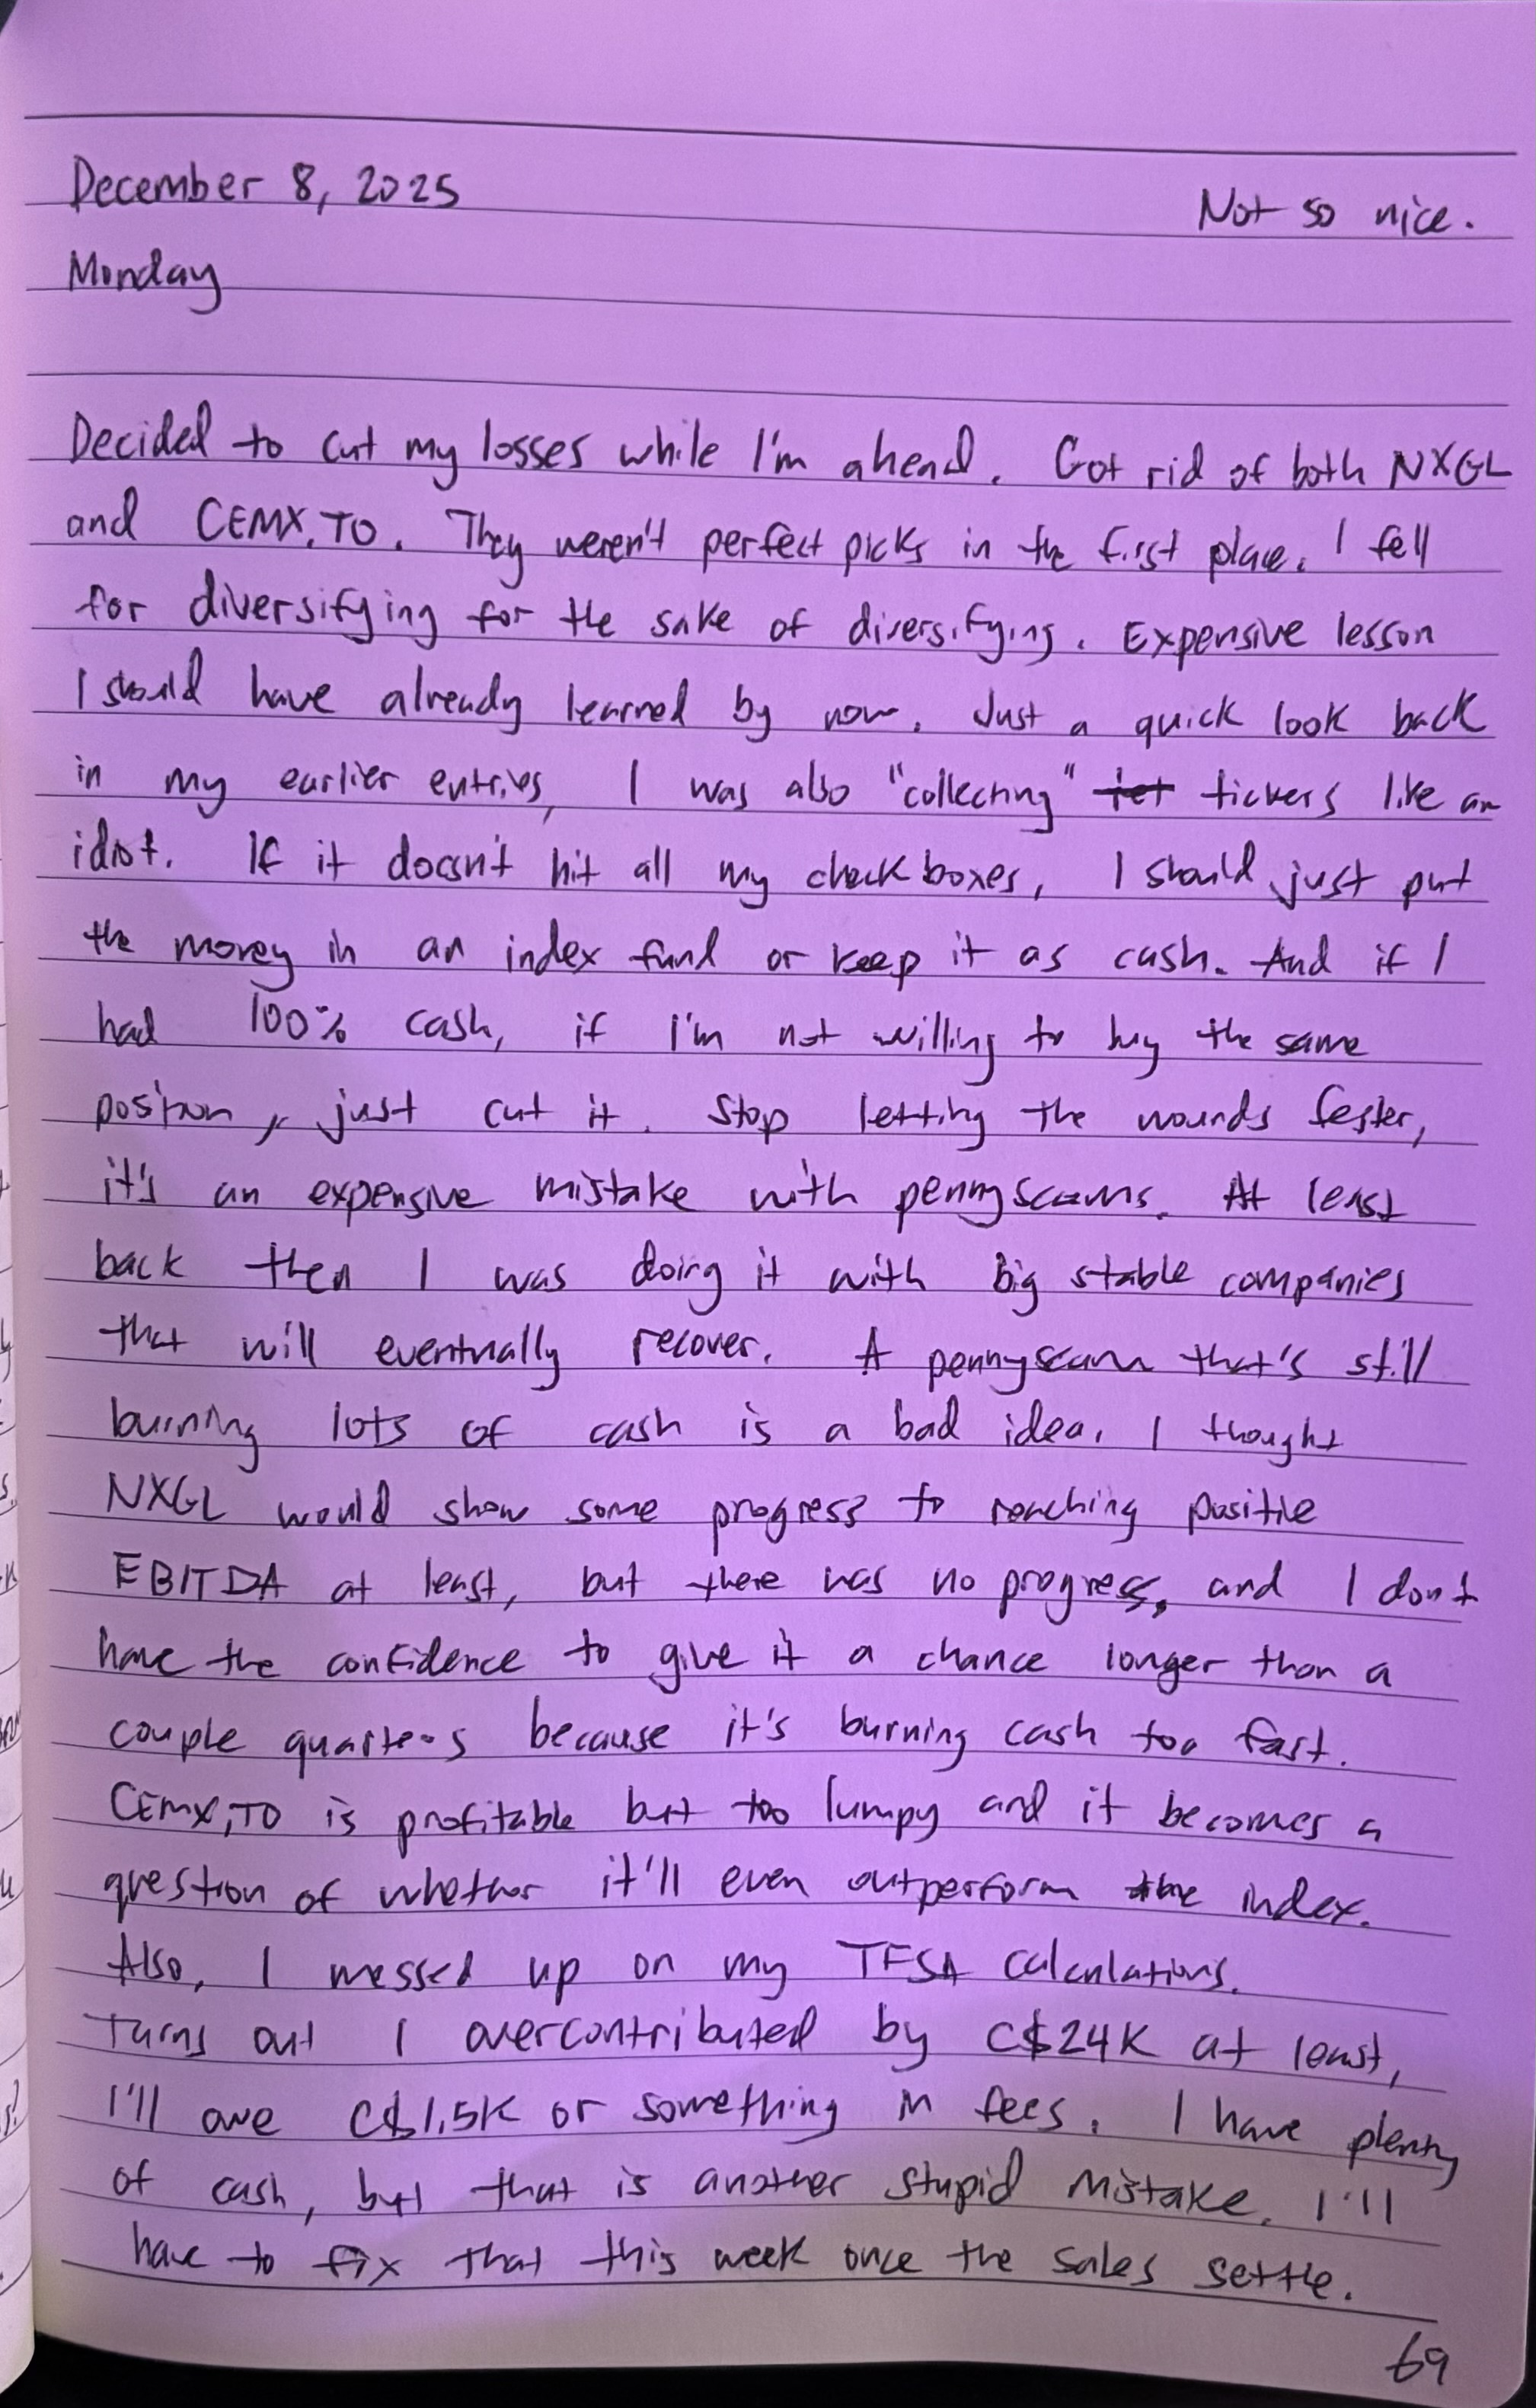 December 8, 2025
Not so nice.
Monday
Decided to cut my losses while I'm ahead. Got rid of both NXGL
and CEMX.TO. They weren't perfect picks in the first place. I fell
for diversifying for the sake of diversifying. Expensive lesson
I should have already learned by now. Just a quick look back
in my earlier entries, I was also "collecting" tickers like an
idiot. If it doesn't hit all my check boxes, I should just put
the money in an index fund or keep it as cash. And if I
had 100% cash, if I'm not willing to buy the same
position, just cut it. Stop letting the wounds fester,
it's an expensive mistake with pennyscams. At least
back then I was doing it with big stable companies
that will eventually recover. A pennyscam that's still
burning lots of cash is a bad idea. I thought
NXGL would show some progress to reaching positive
EBITDA at least, but there was no progress, and I don't
have the confidence to give it a chance longer than a
couple quarters because it's burning cash too fast.
CEMX.TO is profitable but too lumpy and it becomes a
question of whether it'll even outperform the index.
Also, I messed up on my TFSA calculations.
Turns out I overcontributed by C$24K at least,
I'll owe C$1.5K or something in fees. I have plenty
of cash, but that is another stupid mistake. I'll
have to fix that this week once the sales settle.
69